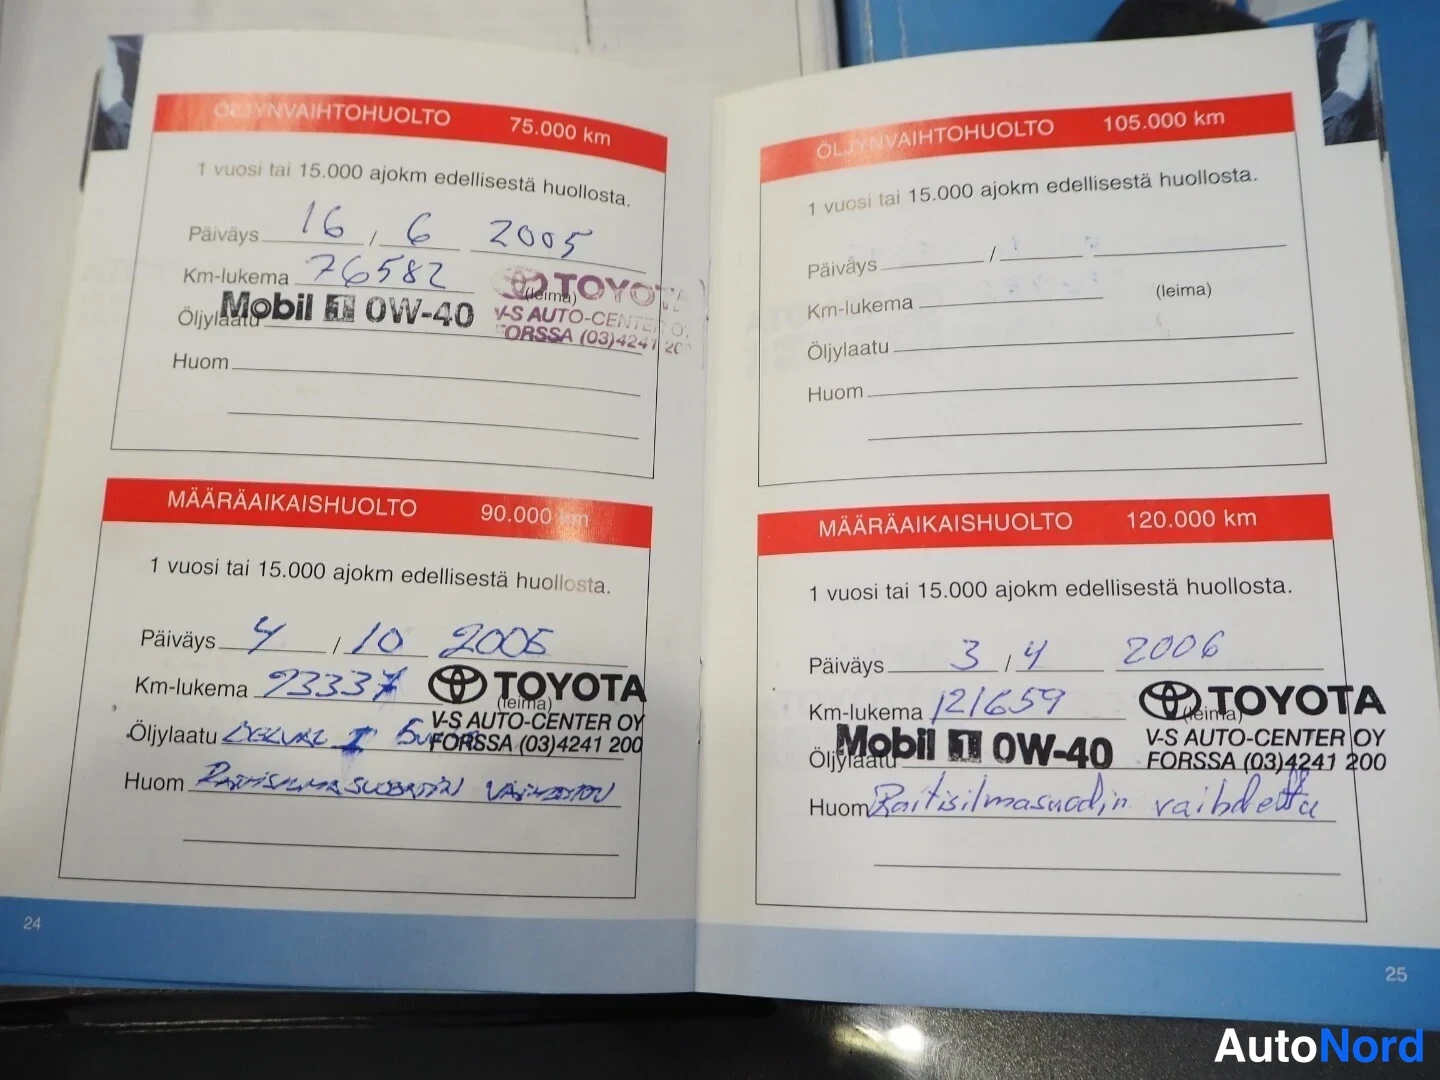 ÖLJYNVAIHTOHUOLTO 75.000 km
1 vuosi tai 15.000 ajokm edellisestä huollosta.
Päiväys 16 / 6 2005
Km-lukema 76582
(leima)
TOYOTA
V-S AUTO-CENTER OY
FORSSA (03)4241 200
Öljylaatu Mobil 1 0W-40
Huom
MÄÄRÄAIKAISHUOLTO 90.000 km
1 vuosi tai 15.000 ajokm edellisestä huollosta.
Päiväys 4 / 10 2005
Km-lukema 93337
(leima)
TOYOTA
V-S AUTO-CENTER OY
FORSSA (03)4241 200
Öljylaatu
Huom RAITISILMASUODATIN VAIHDETTU
24
ÖLJYNVAIHTOHUOLTO 105.000 km
1 vuosi tai 15.000 ajokm edellisestä huollosta.
Päiväys /
Km-lukema (leima)
Öljylaatu
Huom
MÄÄRÄAIKAISHUOLTO 120.000 km
1 vuosi tai 15.000 ajokm edellisestä huollosta.
Päiväys 3 / 4 2006
Km-lukema 121659
(leima)
TOYOTA
V-S AUTO-CENTER OY
FORSSA (03)4241 200
Öljylaatu Mobil 1 0W-40
Huom Raitisilmasuodin vaihdettu
25
AutoNord